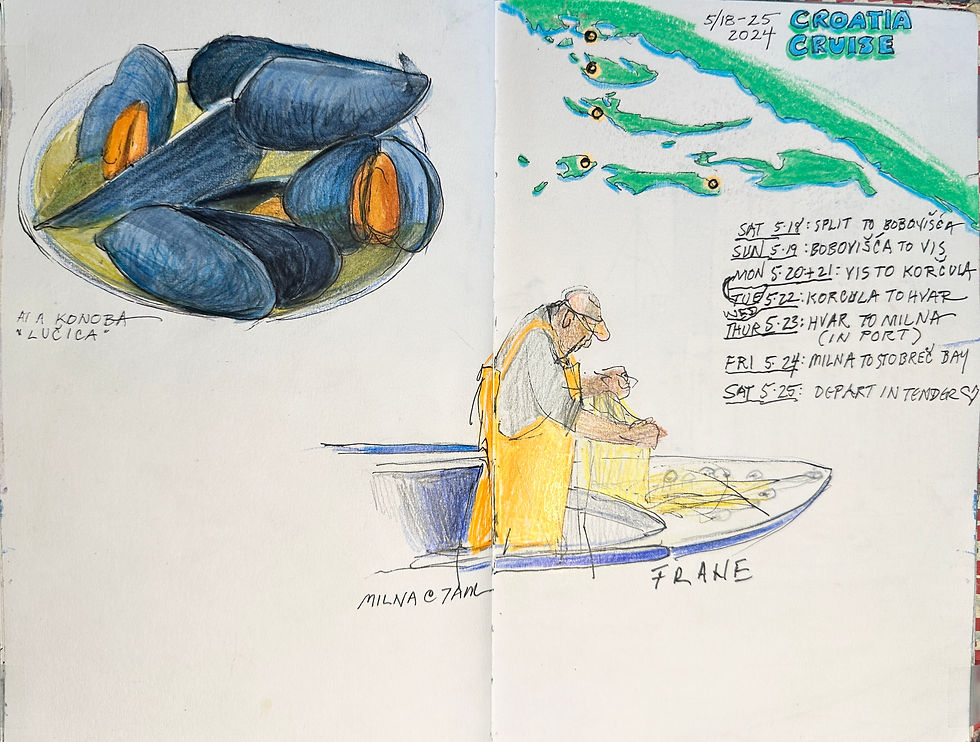 AT A KONOBA
"LUČICA"
5/18-25
2024
CROATIA
CRUISE
SAT 5·18: SPLIT TO BOBOVIŠĆA
SUN 5·19: BOBOVIŠĆA TO VIS
MON 5·20+21: VIS TO KORČULA
TUE 5·22: KORČULA TO HVAR
WED
THUR 5·23: HVAR TO MILNA
(IN PORT)
FRI 5·24: MILNA TO STOBREČ BAY
SAT 5·25: DEPART IN TENDER♡
FRANE
MILNA @ 7AM